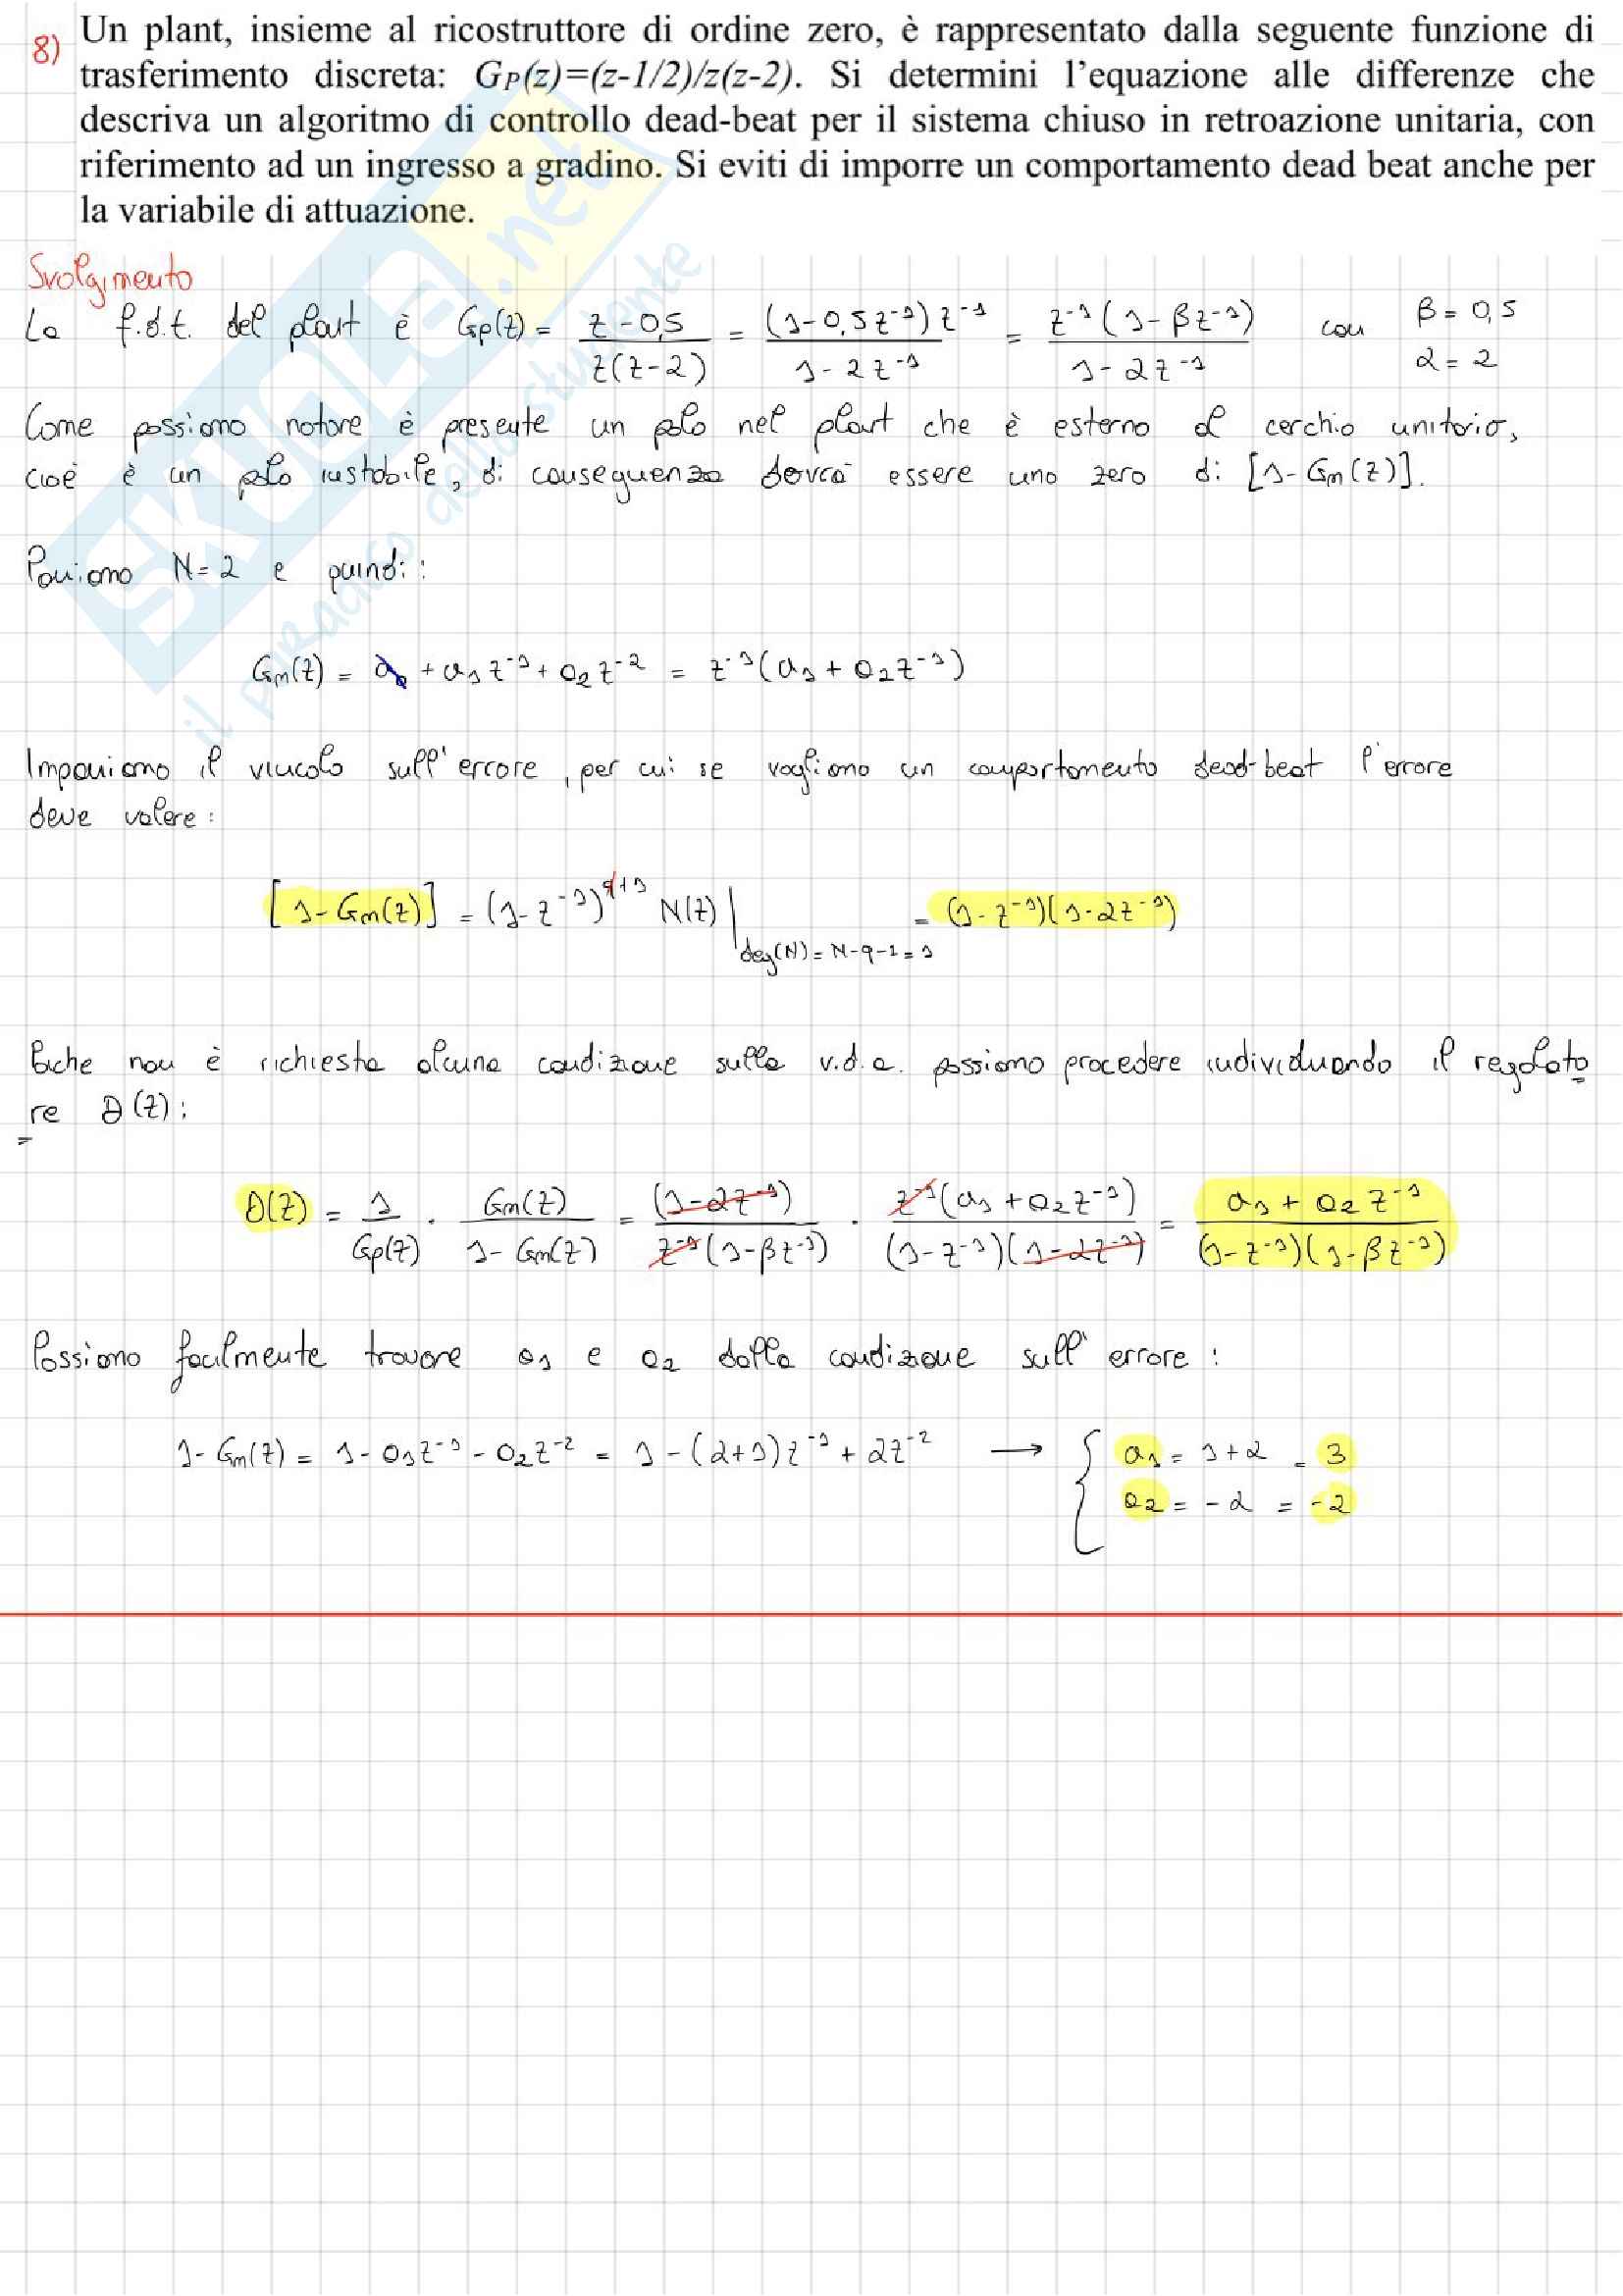 8) Un plant, insieme al ricostruttore di ordine zero, è rappresentato dalla seguente funzione di
trasferimento discreta: GP(z)=(z-1/2)/z(z-2). Si determini l'equazione alle differenze che
descriva un algoritmo di controllo dead-beat per il sistema chiuso in retroazione unitaria, con
riferimento ad un ingresso a gradino. Si eviti di imporre un comportamento dead beat anche per
la variabile di attuazione.
Svolgimento
La f.d.t. del plant è Gp(z) = z-0,5 / z(z-2) = (1-0,5z⁻¹)z⁻¹ / 1-2z⁻¹ = z⁻¹(1-βz⁻¹) / 1-αz⁻¹ con β=0,5 α=2
Come possiamo notare è presente un polo nel plant che è esterno al cerchio unitario,
cioè è un polo instabile, di conseguenza dovrà essere uno zero di [1-Gm(z)].
Poniamo N=2 e quindi:
Gm(z) = a₀ + a₁z⁻¹ + a₂z⁻² = z⁻¹(a₁ + a₂z⁻¹)
Imponiamo il vincolo sull'errore, per cui se vogliamo un comportamento dead-beat l'errore
deve valere:
[1-Gm(z)] = (1-z⁻¹)^(q+1) N(z)| deg(N)=N-q-1=1 = (1-z⁻¹)(1-αz⁻¹)
Poiche non è richiesta alcuna condizione sulla v.d.a. possiamo procedere individuando il regolato
re D(z):
D(z) = 1/Gp(z) · Gm(z)/1-Gm(z) = (1-αz⁻¹)/z⁻¹(1-βz⁻¹) · z⁻¹(a₁+a₂z⁻¹)/(1-z⁻¹)(1-αz⁻¹) = a₁+a₂z⁻¹/(1-z⁻¹)(1-βz⁻¹)
Possiamo facilmente trovare a₁ e a₂ dalla condizione sull'errore:
1-Gm(z) = 1-a₁z⁻¹-a₂z⁻² = 1-(α+1)z⁻¹+αz⁻² → { a₁ = 1+α = 3
a₂ = -α = -2
SKUOLA.net
il paradiso dello studente